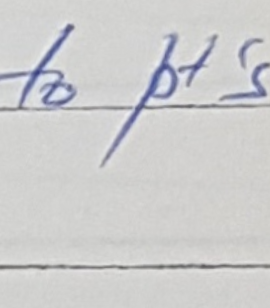 to pt's